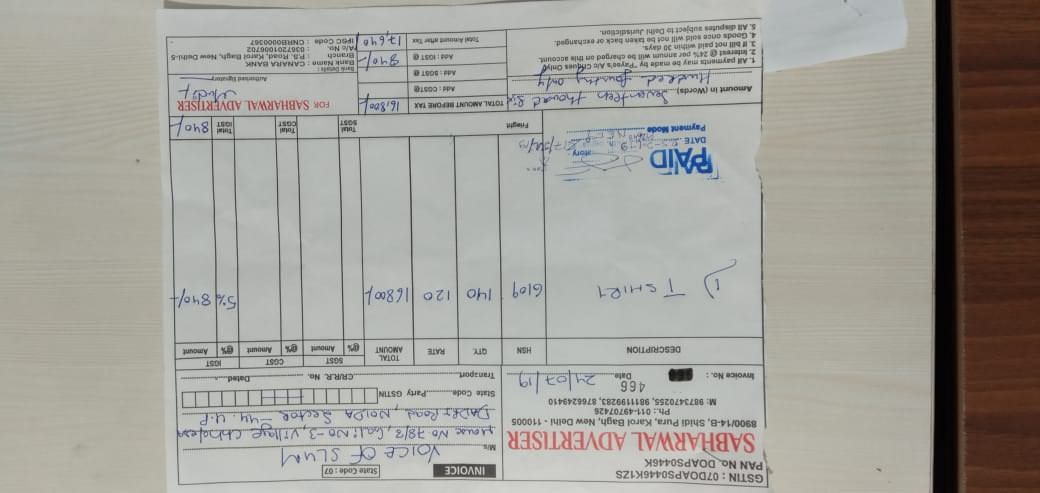 GSTIN : 07DOAPS0446K1ZS
PAN No. DOAPS0446K
SABHARWAL ADVERTISER
8900/14-B, Shidi Pura, Karol Bagh, New Delhi - 110005
Ph.: 011-49707426
M: 9873470255, 9811199283, 8766249410
INVOICE
State Code : 07
M/s VOICE OF SLUM
House No 78/3, Gali No-3, Village Chhalera
DADRI Road, NOIDA Sector -44. U.P
State Code Party GSTIN
Invoice No. : 466
Date 24/07/19
Transport CR/R.R. No. Dated
DESCRIPTION HSN QTY. RATE TOTAL AMOUNT SGST CGST IGST
@% Amount @% Amount @% Amount
1) TSHIRT 6109 140 120 16800/- 5% 840/-
PAID
DATE
Payment Mode
Frieght Total SGST Total CGST Total IGST 840/-
Amount in (Words) Seventeen thousand Six
Hundred fourty only
TOTAL AMOUNT BEFORE TAX 16,800/-
Add : CGST@
Add : SGST @
Add : IGST @ 840/-
Total Amount after Tax 17,640/-
1. All payments may be made by "Payse's A/c Cheques Only"
2. Interest @ 24% per annum will be charged on this account.
3. If bill not paid within 30 days.
4. Goods once sold will not be taken back or exchanged.
5. All disputes subject to Delhi Jurisdiction.
FOR SABHARWAL ADVERTISER
Authorised Signatory
Bank Details :
Bank Name : CANARA BANK
Branch : P.S. Road, Karol Bagh, New Delhi-5
IFSC Code : CNRB0000367